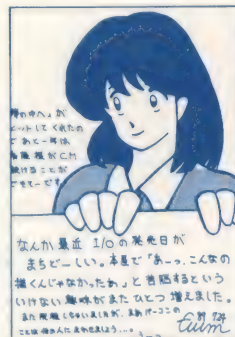 の中へ」が
ヒットしてくれたの
であと一年は
斉藤様がCM
続けることが
できそーです
なんか最近 I/Oの発売日が
まちどーしい。本屋で「あーっ、こんなの
描くんじゃなかったぁ」と苦悶するという
いけない趣味がまたひとつ増えました。
また発展しちゃいましたが、まあパーコンの
ことは他の人にまかせましょう…。
'89 7.24